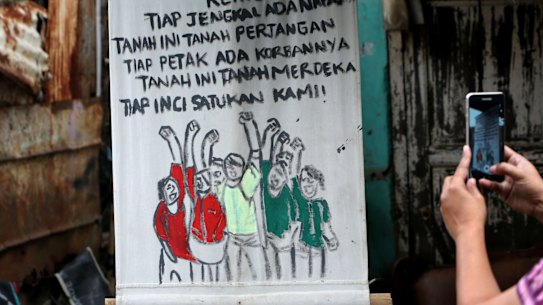 TIAP JENGKAL ADA
TANAH INI TANAH PERJANGAN
TIAP PETAK ADA KORBANNYA
TANAH INI TANAH MERDEKA
TIAP INCI SATUKAN KAMI!